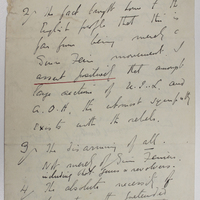 2. The fact brought home to the
English people that this is
far from being merely a
Sinn Fein movement. I
assert positively that amongst
large sections of U.I.L. and
A.O.H. the utmost sympathy
exists with the rebels.
3. The disarming of all.
Not merely of Sinn Feiners
including shot guns & revolvers.
4. The absolute necessity of